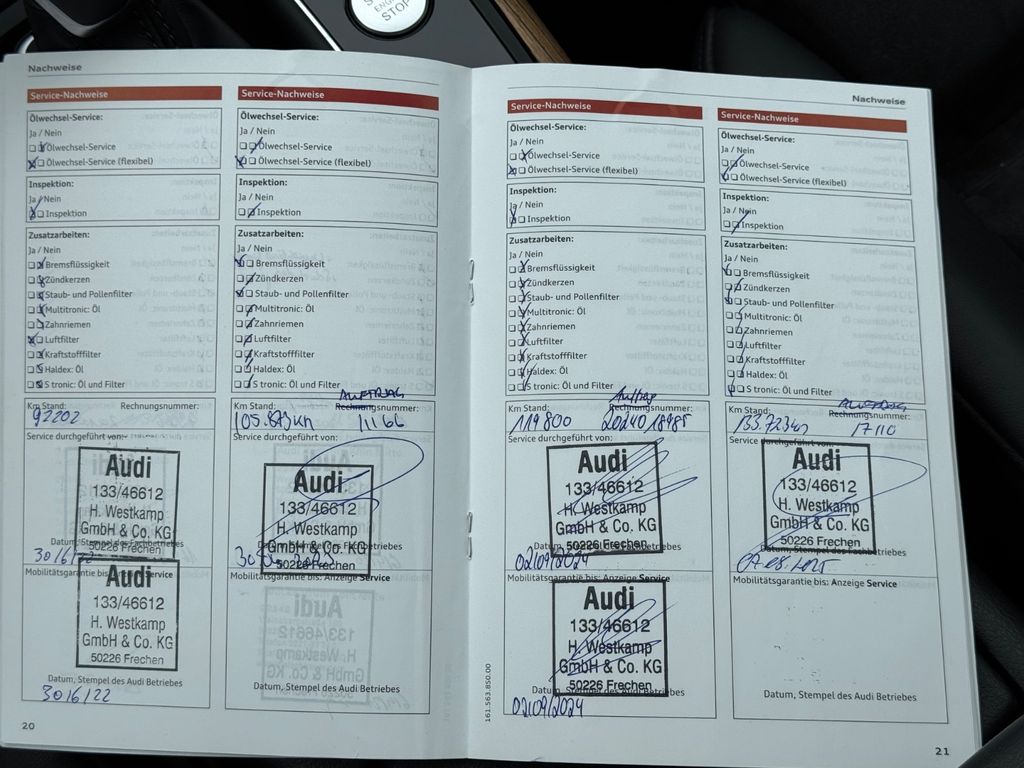 START
ENGINE
STOP
Nachweise
Service-Nachweise
Ölwechsel-Service:
Ja / Nein
Ölwechsel-Service
Ölwechsel-Service (flexibel)
Inspektion:
Ja / Nein
Inspektion
Zusatzarbeiten:
Ja / Nein
Bremsflüssigkeit
Zündkerzen
Staub- und Pollenfilter
Multitronic: Öl
Zahnriemen
Luftfilter
Kraftstofffilter
Haldex: Öl
S tronic: Öl und Filter
Km Stand: Rechnungsnummer:
92202
Service durchgeführt von:
Audi
133/46612
H. Westkamp
GmbH & Co. KG
50226 Frechen
Datum, Stempel des Fachbetriebes
30/6/22
Mobilitätsgarantie bis: Anzeige Service
Audi
133/46612
H. Westkamp
GmbH & Co. KG
50226 Frechen
Datum, Stempel des Audi Betriebes
30/6/22
20
Service-Nachweise
Ölwechsel-Service:
Ja / Nein
Ölwechsel-Service
Ölwechsel-Service (flexibel)
Inspektion:
Ja / Nein
Inspektion
Zusatzarbeiten:
Ja / Nein
Bremsflüssigkeit
Zündkerzen
Staub- und Pollenfilter
Multitronic: Öl
Zahnriemen
Luftfilter
Kraftstofffilter
Haldex: Öl
S tronic: Öl und Filter
AUFTRAG
Km Stand: Rechnungsnummer:
105.873km 11166
Service durchgeführt von:
Audi
133/46612
H. Westkamp
GmbH & Co. KG
50226 Frechen
Mobilitätsgarantie bis: Anzeige Service
Datum, Stempel des Audi Betriebes
Nachweise
Service-Nachweise
Ölwechsel-Service:
Ja / Nein
Ölwechsel-Service
Ölwechsel-Service (flexibel)
Inspektion:
Ja / Nein
Inspektion
Zusatzarbeiten:
Ja / Nein
Bremsflüssigkeit
Zündkerzen
Staub- und Pollenfilter
Multitronic: Öl
Zahnriemen
Luftfilter
Kraftstofffilter
Haldex: Öl
S tronic: Öl und Filter
Auftrag
Km Stand: Rechnungsnummer:
119800 2024018985
Service durchgeführt von:
Audi
133/46612
H. Westkamp
GmbH & Co. KG
50226 Frechen
Datum, Stempel des Fachbetriebes
02/09/2024
Mobilitätsgarantie bis: Anzeige Service
Audi
133/46612
H. Westkamp
GmbH & Co. KG
50226 Frechen
Datum, Stempel des Audi Betriebes
02/09/2024
161.563.850.00
Service-Nachweise
Ölwechsel-Service:
Ja / Nein
Ölwechsel-Service
Ölwechsel-Service (flexibel)
Inspektion:
Ja / Nein
Inspektion
Zusatzarbeiten:
Ja / Nein
Bremsflüssigkeit
Zündkerzen
Staub- und Pollenfilter
Multitronic: Öl
Zahnriemen
Luftfilter
Kraftstofffilter
Haldex: Öl
S tronic: Öl und Filter
AUFTRAG
Km Stand: Rechnungsnummer:
17110
Service durchgeführt von:
Audi
133/46612
H. Westkamp
GmbH & Co. KG
50226 Frechen
Datum, Stempel des Fachbetriebes
Mobilitätsgarantie bis: Anzeige Service
Datum, Stempel des Audi Betriebes
21